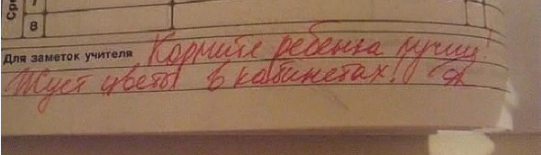 Ср
7
8
Для заметок учителя Кормите ребенка лучше!
Жует цветы в кабинетах!